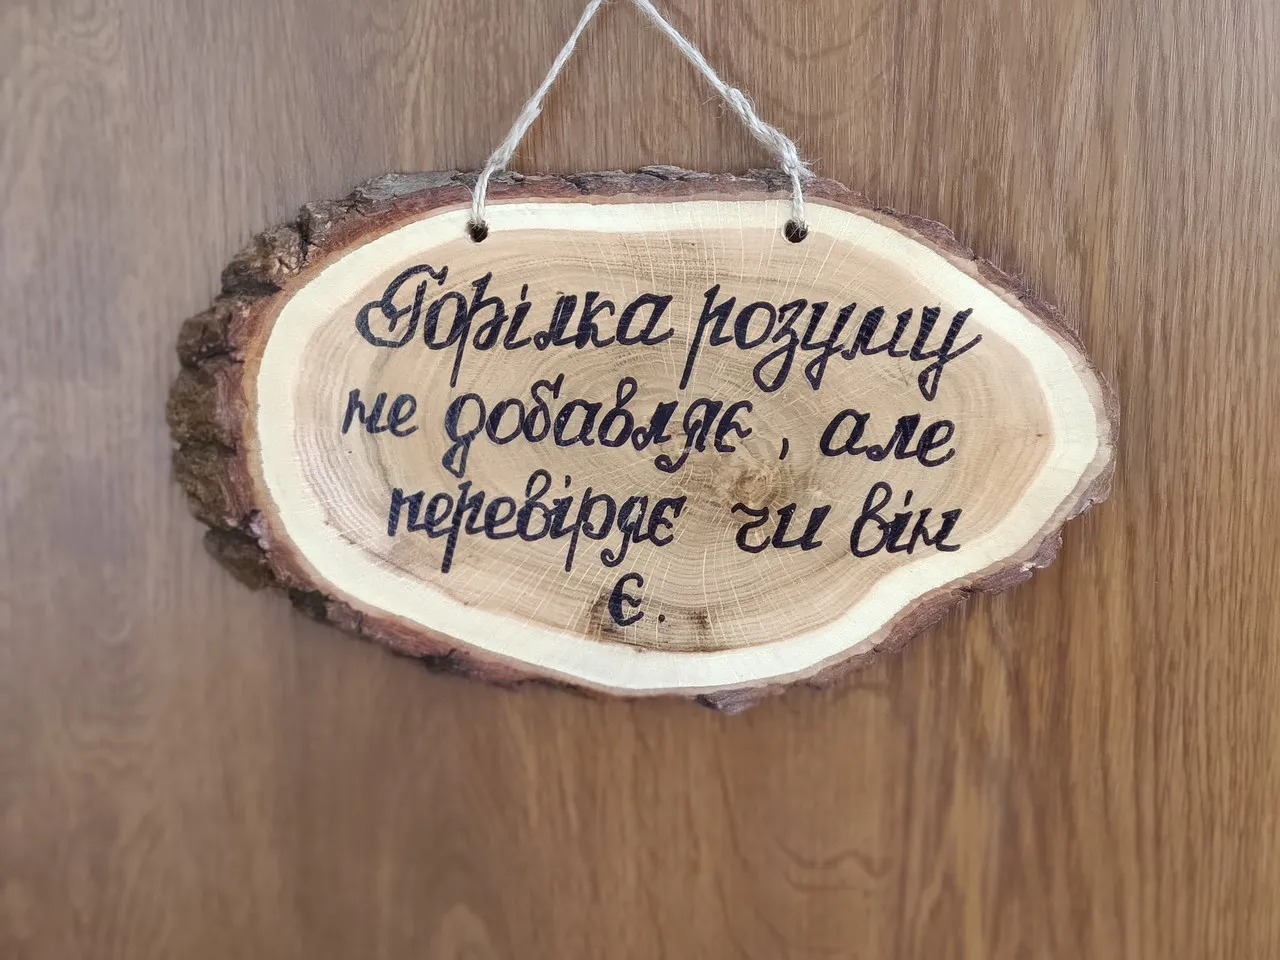 Горілка розуму
не добавляє, але
перевіряє чи він
є.